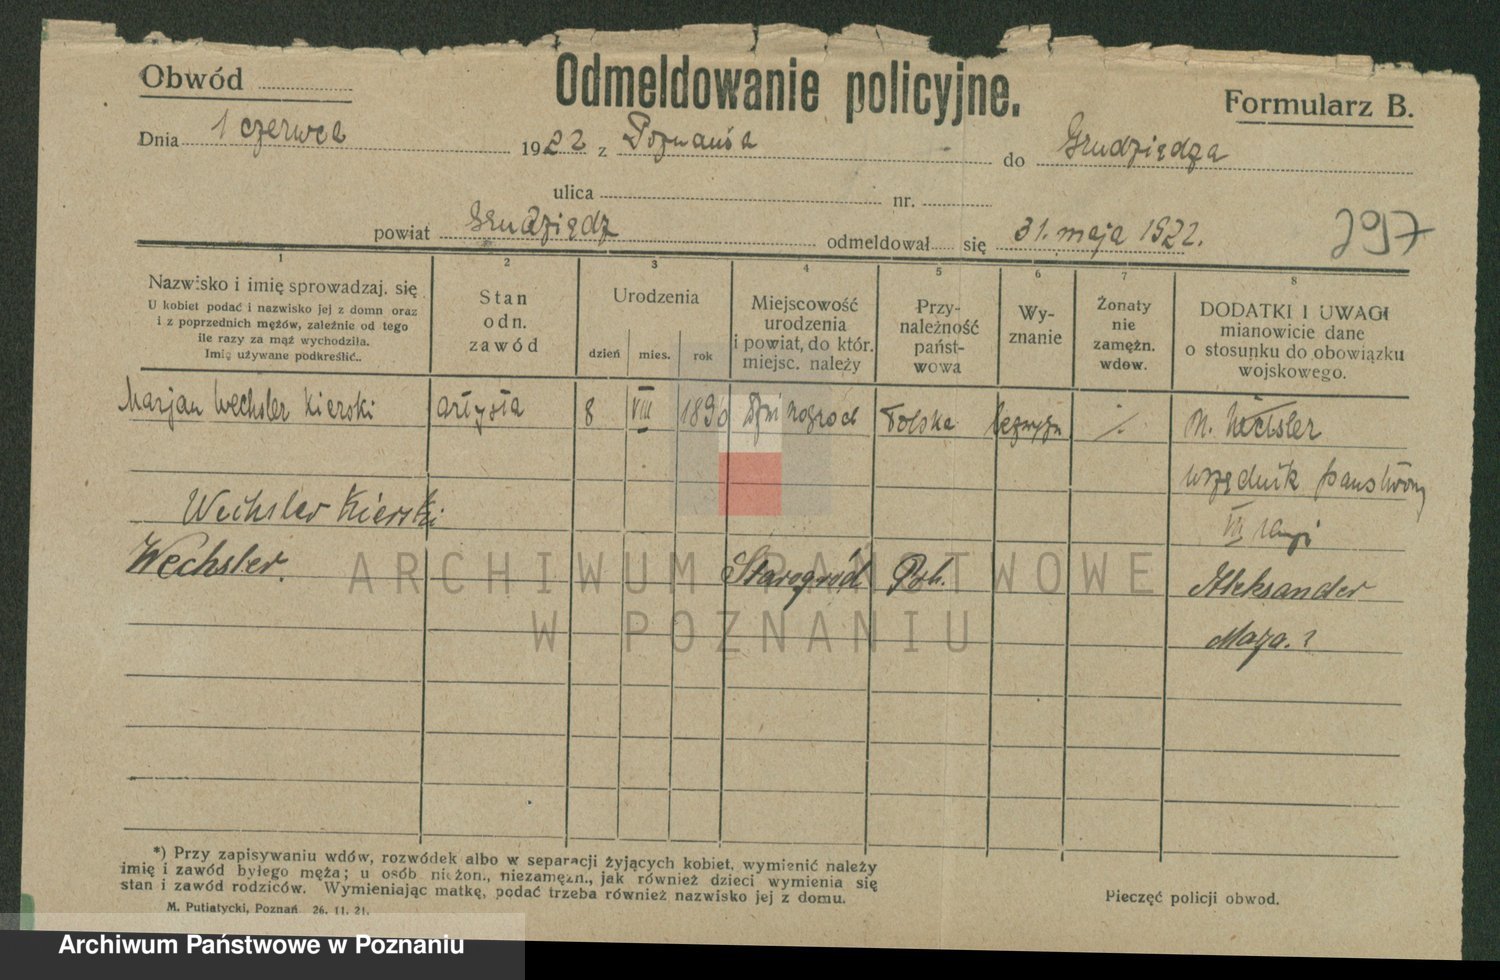 Odmeldowanie policyjne.
Obwód
Formularz B.
Dnia 1 czerwca 1922 z Poznania do Grudziądza
ulica nr.
powiat Grudziądz odmeldował się 31. maja 1922.
297
1 2 3 4 5 6 7 8
Nazwisko i imię sprowadzaj. się
U kobiet podać i nazwisko jej z domn oraz
i z poprzednich mężów, zależnie od tego
ile razy za mąż wychodziła.
Imię używane podkreślić..
Stan
odn.
zawód
Urodzenia
dzień mies. rok
Miejscowość
urodzenia
i powiat, do któr.
miejsc. należy
Przy-
należność
państ-
wowa
Wy-
znanie
Żonaty
nie
zamężn.
wdow.
DODATKI I UWAGI
mianowicie dane
o stosunku do obowiązku
wojskowego.
Marjan Wechsler Kierski artysta 8 VIII 1890 Polska M. Wechsler
urzędnik państwowy
VII rangi
Wechsler Kierski
Wechsler. Starogród Pol. Aleksander
ARCHIWUM PAŃSTWOWE
W POZNANIU
*) Przy zapisywaniu wdów, rozwódek albo w separacji żyjących kobiet, wymienić należy
imię i zawód byłego męża; u osób nieżon., niezamężn., jak również dzieci wymienia się
stan i zawód rodziców. Wymieniając matkę, podać trzeba również nazwisko jej z domu.
M. Putiatycki, Poznań 26. 11. 21.
Pieczęć policji obwod.
Archiwum Państwowe w Poznaniu